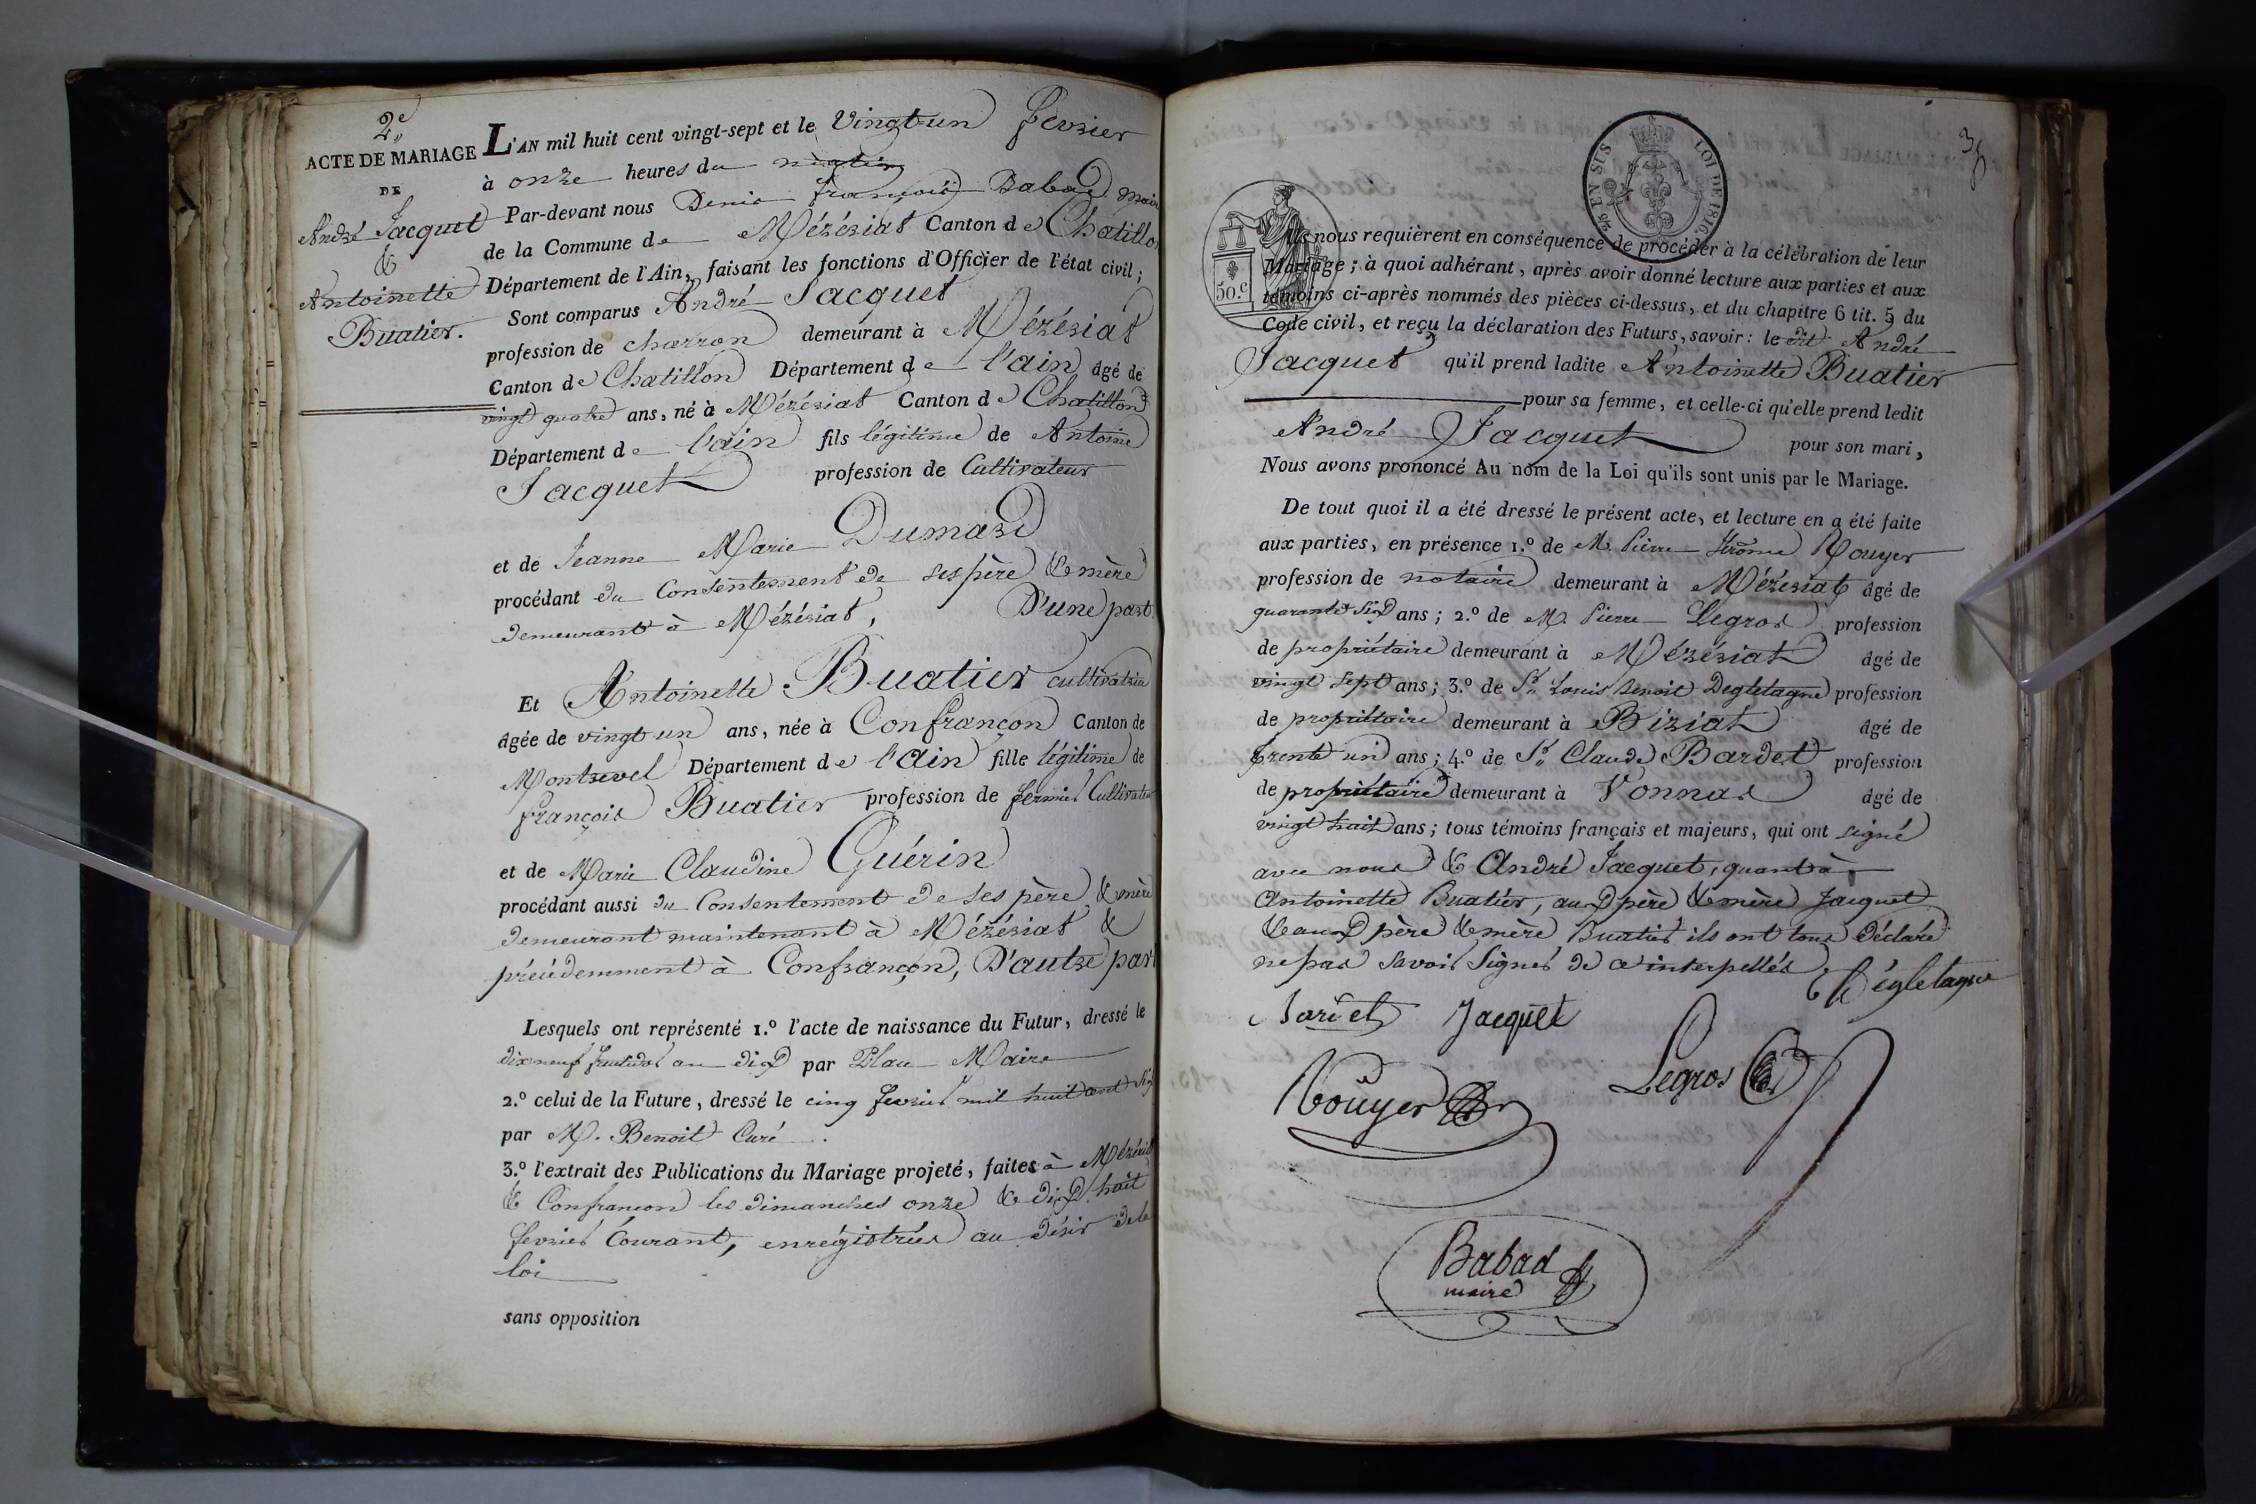 2e
ACTE DE MARIAGE
DE
André Jacquet
&
Antoinette
Buatier.
L'AN mil huit cent vingt-sept et le Vingt un février
à onze heures du matin
Par-devant nous Denis françois Babad maire
de la Commune de Mézériat Canton de Chatillon
Département de l'Ain, faisant les fonctions d'Officier de l'état civil;
Sont comparus André Jacquet
profession de charron demeurant à Mézériat
Canton de Chatillon Département de l'ain âgé de
vingt quatre ans, né à Mézériat Canton de Chatillon
Département de l'ain fils légitime de Antoine
Jacquet profession de Cultivateur
et de Jeanne Marie Dumard
procédant du Consentement de ses père & mère
demeurant à Mézériat, D'une part.
Et Antoinette Buatier cultivatrice
âgée de vingt un ans, née à Confrançon Canton de
Montrevel Département de l'Ain fille légitime de
françois Buatier profession de fermier Cultivateur
et de Marie Claudine Guérin
procédant aussi du Consentement de ses père & mère
demeurant maintenant à Mézériat &
précédemment à Confrançon, D'autre part
Lesquels ont représenté 1.º l'acte de naissance du Futur, dressé le
dix neuf fructidor an dix par Maire
2.º celui de la Future, dressé le cinq fevrier mil huit cent six
par M. Benoit Curé.
3.º l'extrait des Publications du Mariage projeté, faites à Mézériat
& Confrançon les dimanches onze & dix huit
fevrier Courant, enrégistrées au désir de la
loi
sans opposition
38
EN SUS
LOI DE 1816
50.c
Ils nous requièrent en conséquence de procéder à la célébration de leur
Mariage; à quoi adhérant, après avoir donné lecture aux parties et aux
témoins ci-après nommés des pièces ci-dessus, et du chapitre 6 tit. 5 du
Code civil, et reçu la déclaration des Futurs, savoir: le dit André
Jacquet qu'il prend ladite Antoinette Buatier
pour sa femme, et celle-ci qu'elle prend ledit
André Jacquet pour son mari,
Nous avons prononcé Au nom de la Loi qu'ils sont unis par le Mariage.
De tout quoi il a été dressé le présent acte, et lecture en a été faite
aux parties, en présence 1.º de M. Pierre Jérôme Rouyer
profession de notaire demeurant à Mézériat âgé de
quarante six ans; 2.º de M. Pierre Legros profession
de propriétaire demeurant à Mézériat âgé de
vingt sept ans; 3.º de Sr. Louis Benoit Degletagne profession
de propriétaire demeurant à Biziat âgé de
trente un ans; 4.º de Sr. Claude Bardet profession
de propriétaire demeurant à Vonnas âgé de
vingt huit ans; tous témoins français et majeurs, qui ont signé
avec nous & André Jacquet, quant à
Antoinette Buatier, aux père & mère Jacquet
& aux père & mère Buatier ils ont tous déclaré
ne pas savoir signer de ce interpellés.
Dégletagne
Bardet Jacquet
Rouyer
Legros
Babad
maire